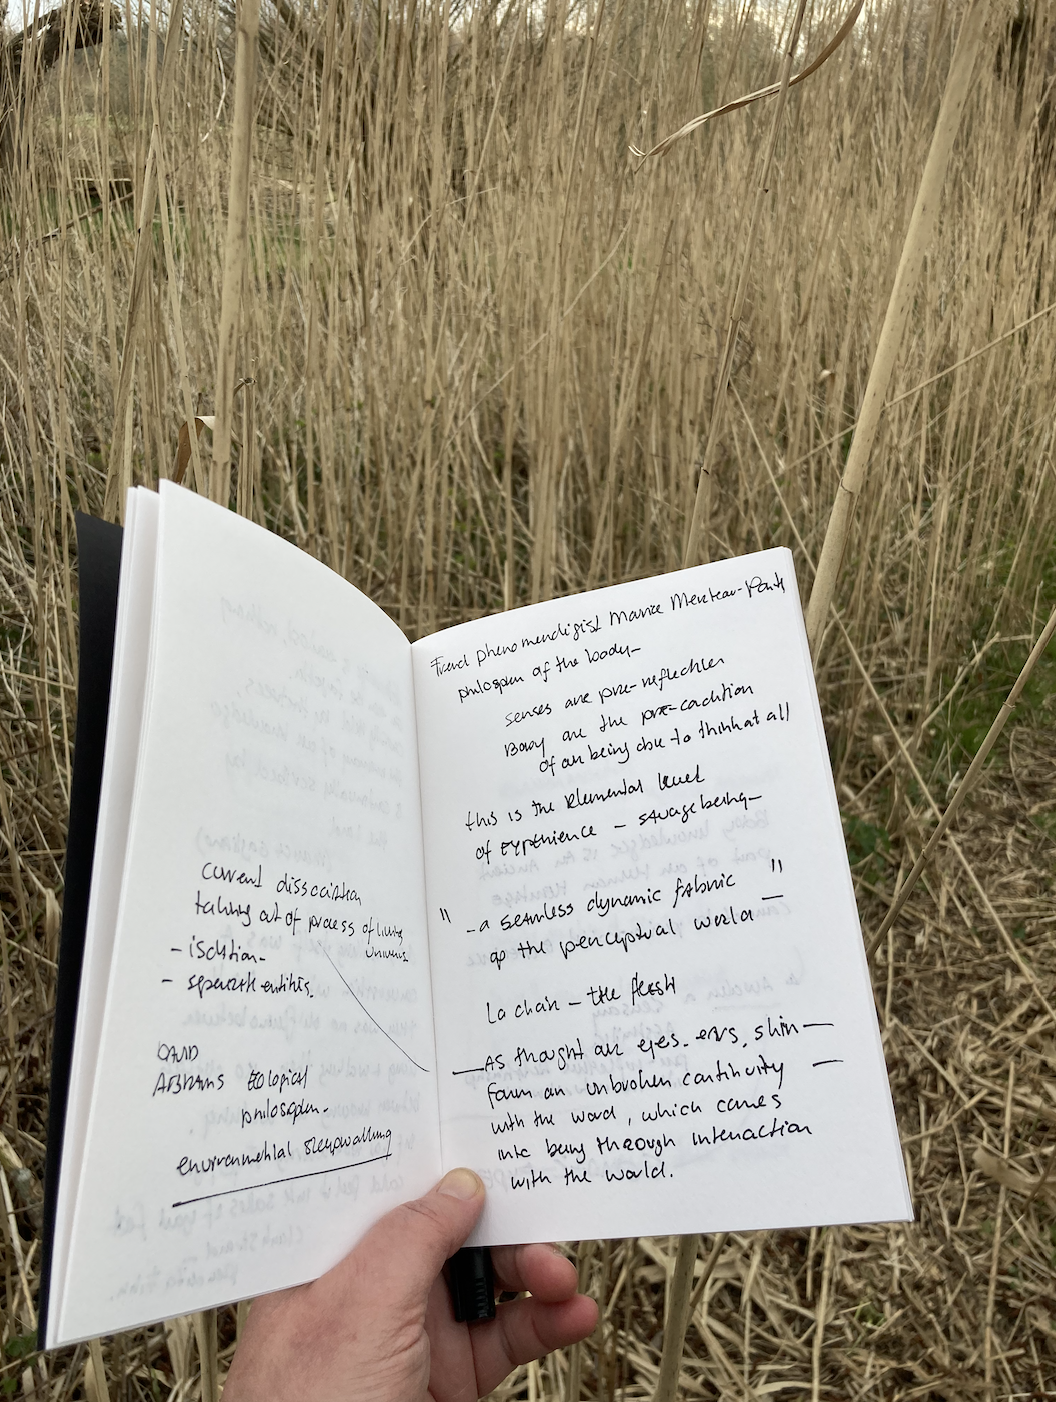 current dissociation
taking out of process of living
universe
- isolation-
- seperate entities.
DAVID
ABRAMS Ecological
philosopher.
environmental sleepwalking
French phenomenoligist Maurice Merleau-Ponty
philosopher of the body-
senses are pre-reflection
Body are the pre-condition
of our being able to think at all
this is the elemental level
of experience - savage being-
" - a seamless dynamic fabric "
of the perceptual world -
La chair - the flesh
- As thought our eyes. ears, skin -
form an unbroken continuity -
with the world, which comes
into being through interaction
with the world.